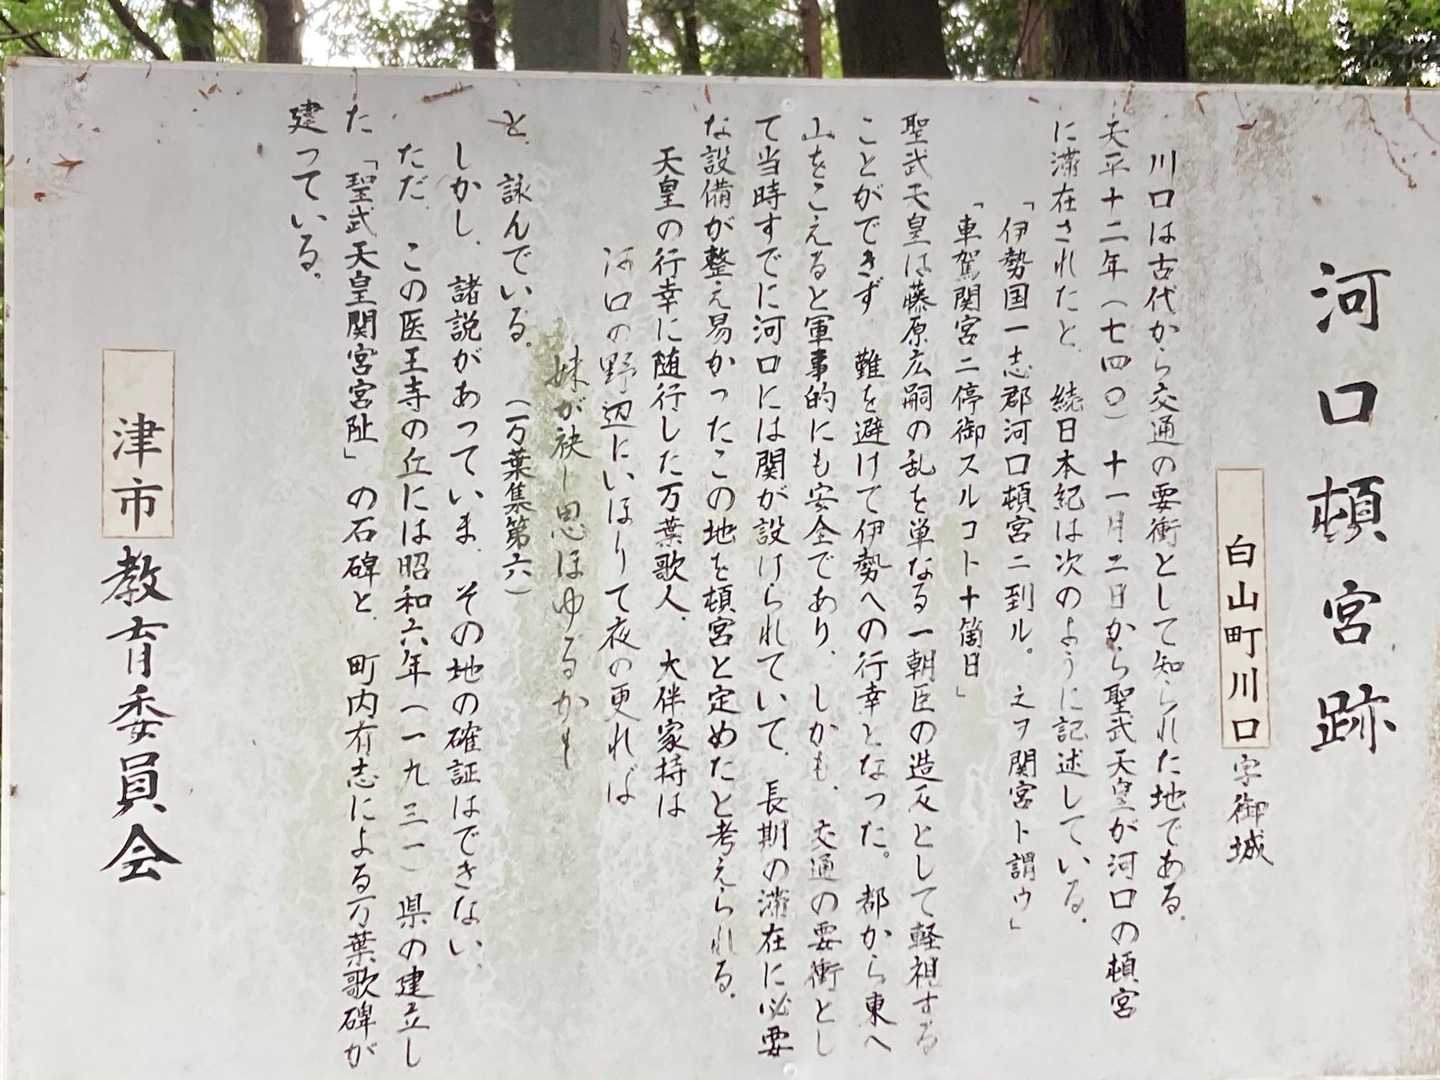 河口頓宮跡
白山町川口字御城
川口は古代から交通の要衝として知られた地である。
天平十二年(七四〇)十一月二日から聖武天皇が河口の頓宮
に滞在されたと、続日本紀は次のように記述している。
「伊勢国一志郡河口頓宮ニ到ル。之ヲ関宮ト謂ウ」
「車駕関宮ニ停御スルコト十箇日」
聖武天皇は藤原広嗣の乱を単なる一朝臣の造反として軽視する
ことができず、難を避けて伊勢への行幸となった。都から東へ
山をこえると軍事的にも安全であり、しかも、交通の要衝とし
て当時すでに河口には関が設けられていて、長期の滞在に必要
な設備が整え易かったこの地を頓宮と定めたと考えられる。
天皇の行幸に随行した万葉歌人、大伴家持は
河口の野辺にいほりて夜の更れば
妹が袂し思ほゆるかも
と、詠んでいる。(万葉集第六)
しかし、諸説があっていま、その地の確証はできない、
ただ、この医王寺の丘には昭和六年(一九三一)県の建立し
た「聖武天皇関宮宮阯」の石碑と、町内有志による万葉歌碑が
建っている。
津市教育委員会